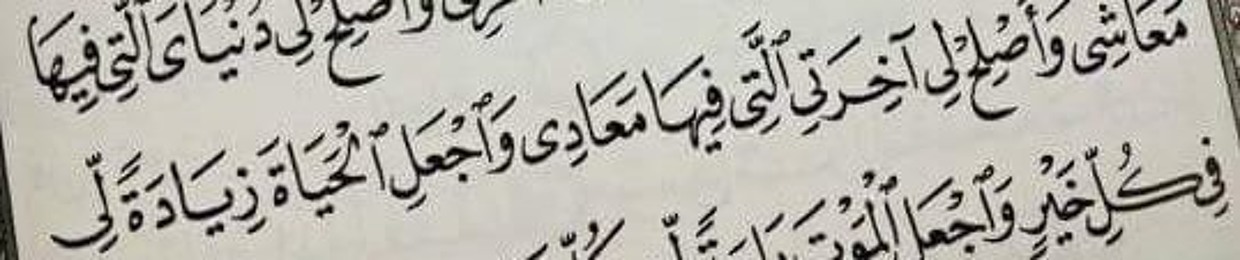 وَأَصْلِحْ لِى دُنْيَاىَ ٱلَّتِى فِيهَا
مَعَاشِى وَأَصْلِحْ لِى آخِرَتِى ٱلَّتِى فِيهَا مَعَادِى وَٱجْعَلِ ٱلْحَيَاةَ زِيَادَةً لِّى
فِى كُلِّ خَيْرٍ وَٱجْعَلِ ٱلْمَوْتَ